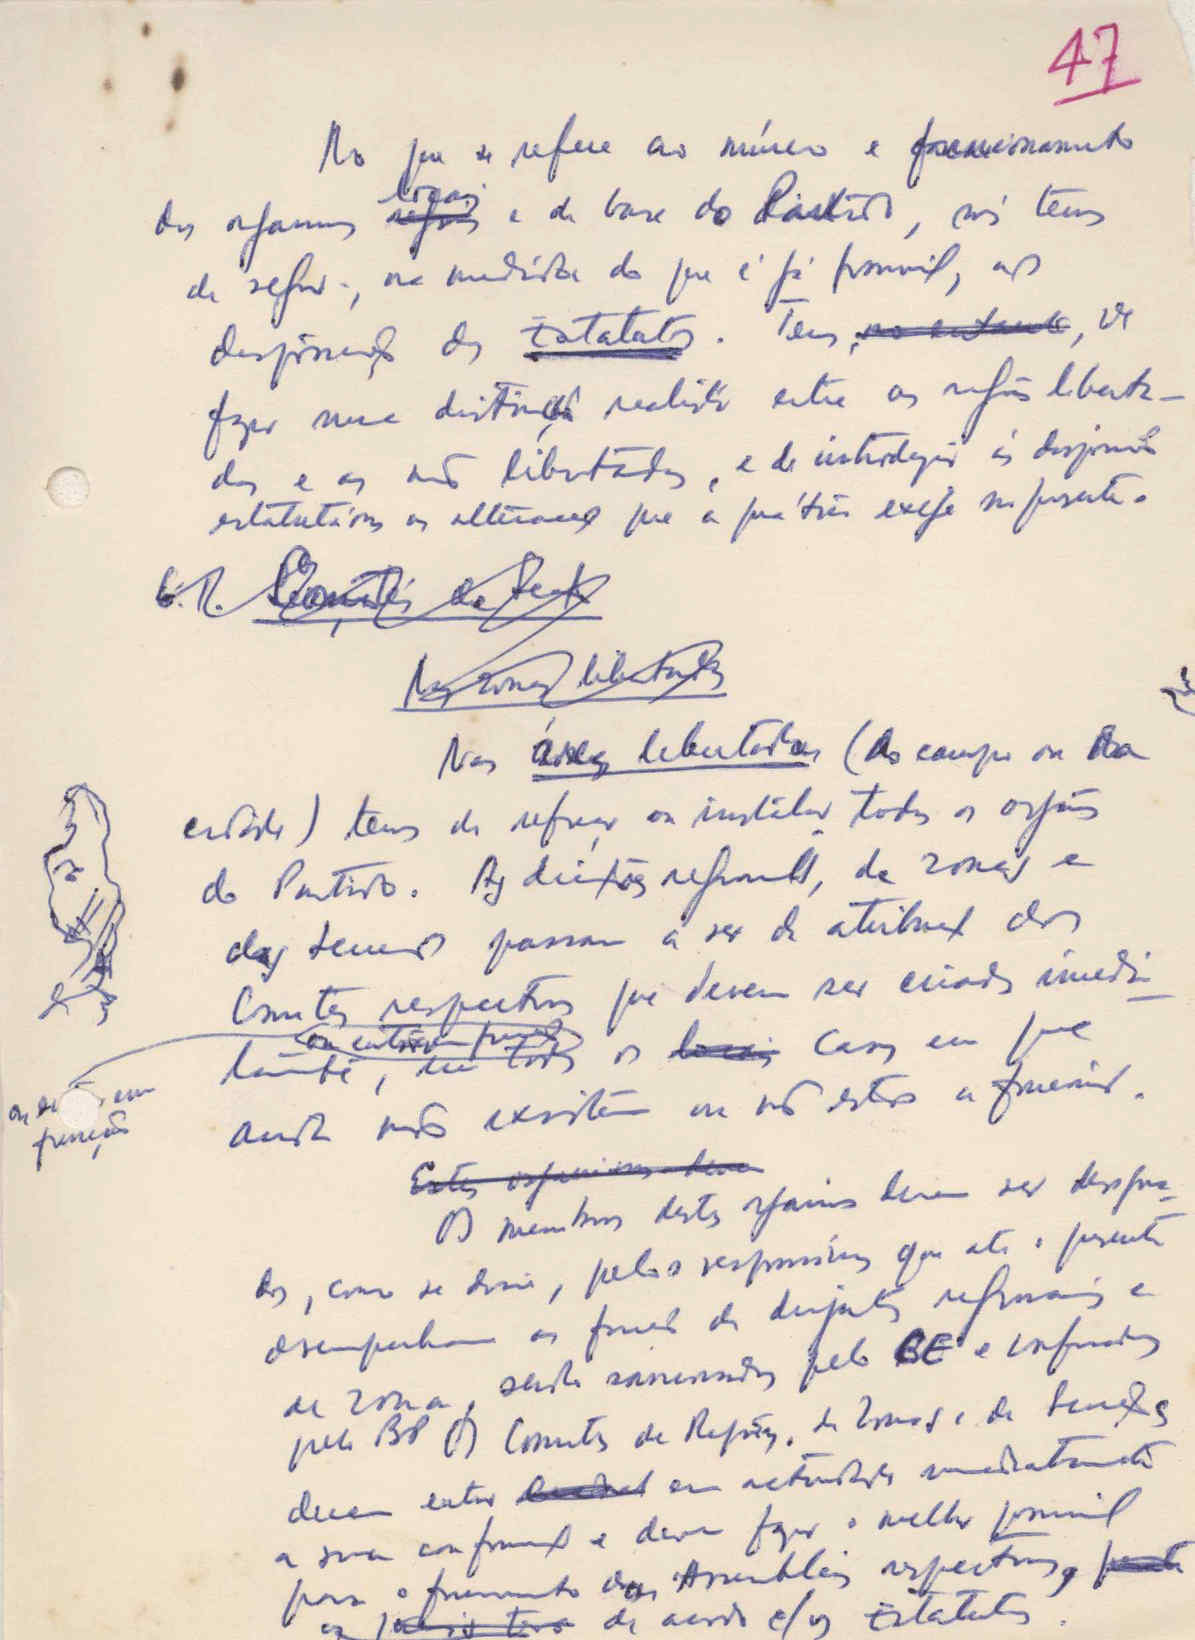 47
No que se refere ao número e funcionamento
dos organismos locais e de base do Partido, nós temos
de seguir, na medida do que é já possível, as
disposições dos Estatutos. Temos, no entanto, de
fazer uma distinção realista entre as regiões liberta-
das e as não libertadas, e de introduzir às disposições
estatutárias as alterações que a prática exige no presente.
Comités de Secção
Nas zonas libertadas
Nas áreas libertadas (do campo ou da
cidade) temos de reforçar ou instalar todos os orgãos
do Partido. As direcções regionais, de zonas e
das secções passam a ser de atribuições dos
Comités respectivos que devem ser criados imedia-
tamente, em todos os locais casos em que
ou entrar em função
ou entrar em
função
ainda não existem ou não estão a funcionar.
Estes organismos devem
Os membros destes organismos devem ser designa-
dos, como se disse, pelos responsáveis que até o presente
desempenham as funções de dirigentes regionais e
de zona, sendo sancionados pelo CE e confirmados
pelo BP. Os Comités de Região, de Zonas e de Secções
devem entrar em actividade imediatamente
a sua confirmação e devem fazer o melhor possível
para o funcionamento das Assembleias respectivas,
de acordo c/os Estatutos.